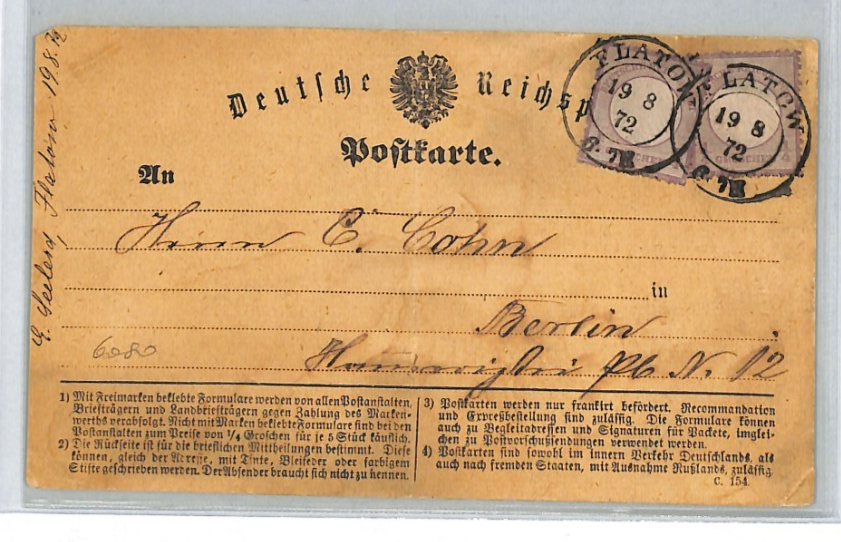 Deutsche Reichsp
Postkarte.
FLATOW
19 8
72
6. 7N
FLATOW
19 8
72
6. 7N
GROSCHEN
An
Herrn C. Cohn
in
Berlin
Pl. N. 12
6080
Flatow 19.8.72
1) Mit Freimarken beklebte Formulare werden von allen Postanstalten,
Briefträgern und Landbriefträgern gegen Zahlung des Marken-
werths verabfolgt. Nicht mit Marken beklebte Formulare sind bei den
Postanstalten zum Preise von 1/4 Groschen für je 5 Stück käuflich.
2) Die Rückseite ist für die brieflichen Mittheilungen bestimmt. Diese
können, gleich der Adresse, mit Tinte, Bleifeder oder farbigem
Stifte geschrieben werden. Der Absender braucht sich nicht zu nennen.
3) Postkarten werden nur frankirt befördert. Recommandation
und Expreßbestellung sind zulässig. Die Formulare können
auch zu Begleitadressen und Signaturen für Packete, imglei-
chen zu Postvorschußsendungen verwendet werden.
4) Postkarten sind sowohl im innern Verkehr Deutschlands, als
auch nach fremden Staaten, mit Ausnahme Rußlands, zulässig.
C. 154.